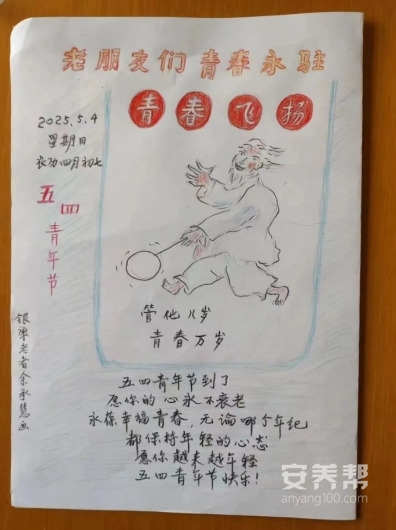 老朋友们青春永驻
青春飞扬
2025.5.4
星期日
农历四月初七
五四青年节
管他几岁
青春万岁
银海老者余承慧画
五四青年节到了
愿你的心永不衰老
永葆幸福青春,无论哪个年纪
都保持年轻的心态
愿你越来越年轻
五四青年节快乐!
安养帮
anyang100.com